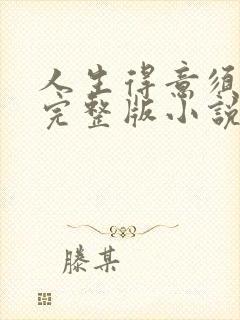 人生得意须
完整版小說
滕某